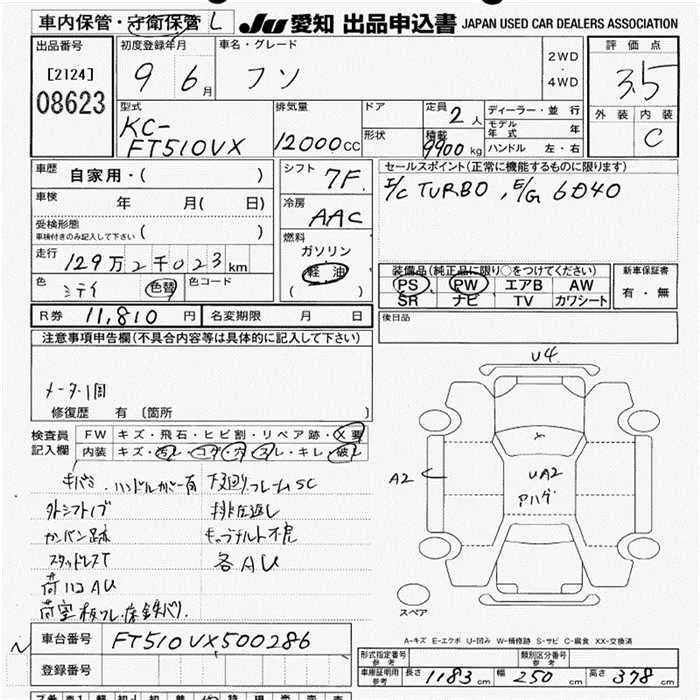 車内保管・守衛保管 L
JU 愛知 出品申込書 JAPAN USED CAR DEALERS ASSOCIATION
出品番号
[2124]
08623
初度登録年月
9 6月
車名・グレード
フソ
2WD
・
4WD
評価点
3.5
外装 内装
C
型式
KC-
FT510VX
排気量
12000cc
ドア
形状
定員 2人
積載
9900kg
ディーラー・並行
モデル年式 年
ハンドル 左・右
車歴
自家用・( )
車検
年 月( 日)
受検形態
車検付きのみ記入して下さい ( )
走行
129万2千023km
色 シテイ 色替 色コード
シフト 7F
冷房
AAC
燃料
ガソリン
軽油
( )
セールスポイント(正常に機能するものに限ります)
I/C TURBO, E/G 6D40
装備品(純正品に限り○をつけてください)
PS PW エアB AW
SR ナビ TV カワシート
新車保証書
有・無
R券 11,810円 名変期限 月 日
後日品
注意事項申告欄(不具合内容等は具体的に記入して下さい)
メーター1周
修復歴 有〔箇所 〕
検査員
記入欄
FW キズ・飛石・ヒビ割・リペア跡・X要
内装 キズ・汚レ・コゲ・穴・スレ・キレ・破レ
キバミ・ハンドルカバー有
外シフトノブ
カンバン跡
スタッドレスT
荷ハコAU
下回りフレームSC
排圧返し
各AU
U4
A2
UA2
アハダ
スペア
A-キズ E-エクボ U-凹み W-補修跡 S-サビ C-腐食 XX-交換済
車台番号 FT510VX500286
登録番号
形式指定番号 参考
類別区分番号 参考
車庫証明用 参考 長さ 1183cm 幅 250cm 高さ 378cm